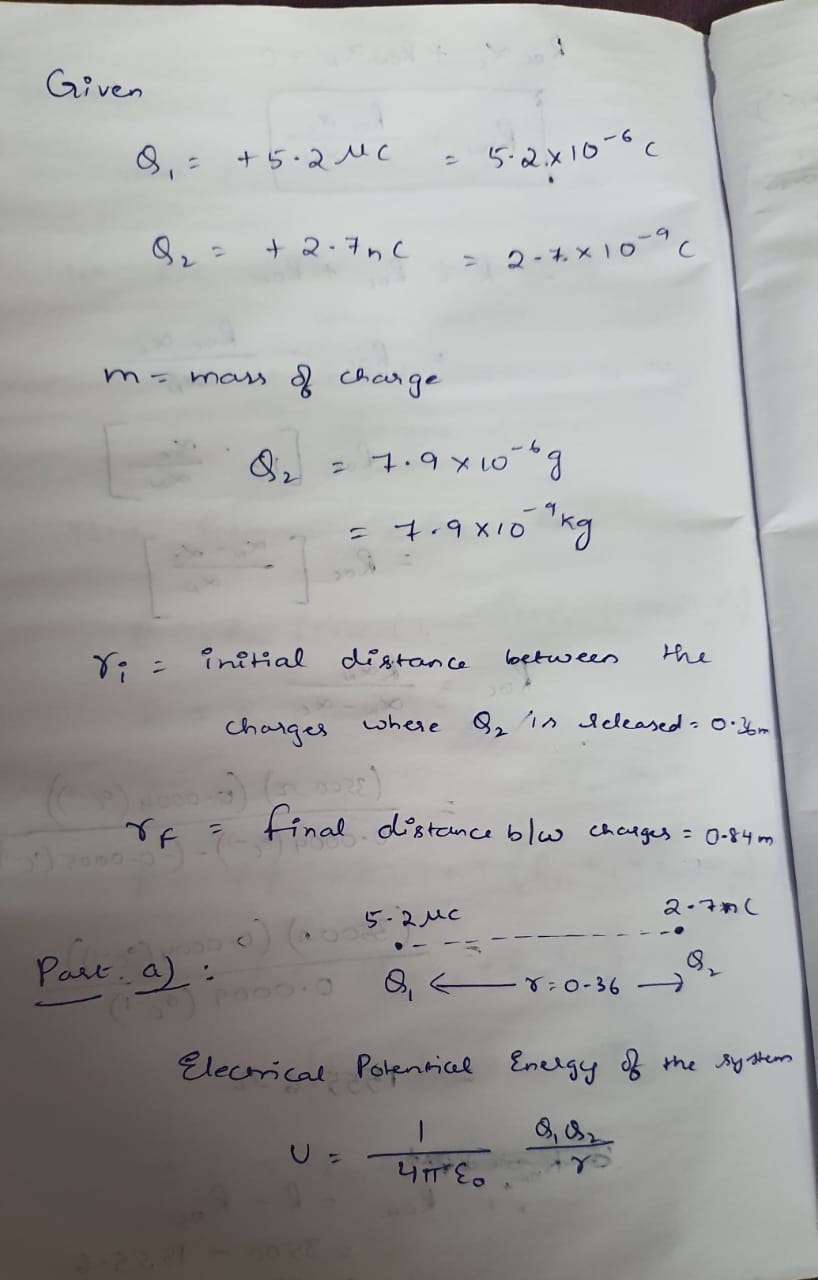 Given
Q₁ = +5.2 μC = 5.2 × 10⁻⁶ C
Q₂ = +2.7nC = 2.7 × 10⁻⁹ C
m = mass of charge
Q₂ = 7.9 × 10⁻⁶ g
= 7.9 × 10⁻⁹ kg
rᵢ = initial distance between the
charges where Q₂ is released = 0.36m
r_f = final distance b/w charges = 0.84m
5.2 μC 2.7nC
Part. a) : Q₁ ← r = 0.36 → Q₂
Electrical Potential Energy of the system
U = 1/4πε₀ Q₁Q₂/r